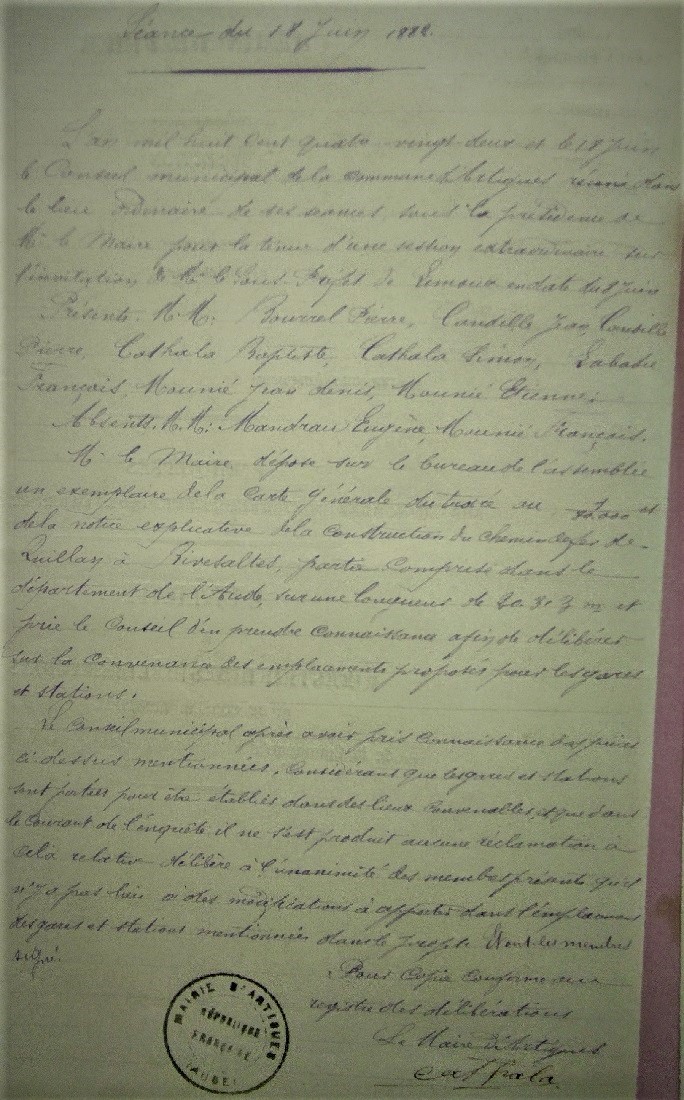 Séance du 18 Juin 1882.
L'an mil huit cent quatre vingt-deux et le 18 Juin
le Conseil municipal de la commune d'Artigues réuni dans
le lieu ordinaire de ses séances, sous la présidence de
Mr le Maire pour la tenue d'une session extraordinaire sur
l'invitation de Mr le Sous-Préfet de Limoux en date du 8 Juin
Présents. M.M: Bourrel Pierre, Candille Jean, Candille
Pierre, Cathala Baptiste, Cathala Simon, Labadie
François, Mounié Jean denis, Mounié Etienne.
Absents. M.M: Mandrau Eugène, Mounié François.
Mr le Maire dépose sur le bureau de l'assemblée
un exemplaire de la carte générale du tracé au et
de la notice explicative de la construction du chemin de fer de
Quillan à Rivesaltes, partie comprise dans le
département de l'Aude, sur une longueur de m et
prie le Conseil d'en prendre connaissance afin de délibérer
sur la convenance des emplacements proposés pour les gares
et stations.
Le Conseil municipal après avoir pris connaissance des pièces
ci-dessus mentionnées, Considérant que les gares et stations
sont portées pour être établies dans des lieux convenables, et que dans
le courant de l'enquête il ne s'est produit aucune réclamation à
cela relative délibère à l'unanimité des membres présents qu'il
n'y a pas lieu à des modifications à apporter dans l'emplacement
des gares et stations mentionnées dans le projet. Et ont les membres
signé.
Pour Copie Conforme au
registre des délibérations
Le Maire d'Artigues
Cathala
MAIRIE D'ARTIGUES
RÉPUBLIQUE
FRANÇAISE
(AUDE)